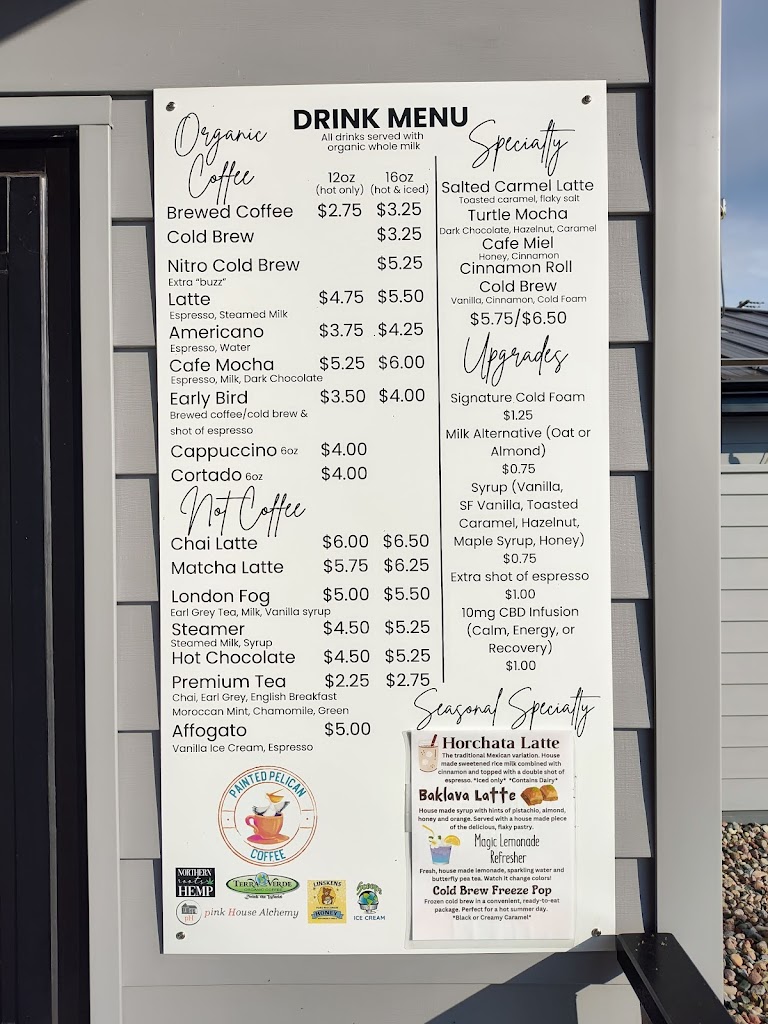 DRINK MENU
All drinks served with
organic whole milk
Organic
Coffee
12oz 16oz
(hot only) (hot & iced)
Brewed Coffee $2.75 $3.25
Cold Brew $3.25
Nitro Cold Brew $5.25
Extra "buzz"
Latte $4.75 $5.50
Espresso, Steamed Milk
Americano $3.75 $4.25
Espresso, Water
Cafe Mocha $5.25 $6.00
Espresso, Milk, Dark Chocolate
Early Bird $3.50 $4.00
Brewed coffee/cold brew &
shot of espresso
Cappuccino 6oz $4.00
Cortado 6oz $4.00
Not Coffee
Chai Latte $6.00 $6.50
Matcha Latte $5.75 $6.25
London Fog $5.00 $5.50
Earl Grey Tea, Milk, Vanilla syrup
Steamer $4.50 $5.25
Steamed Milk, Syrup
Hot Chocolate $4.50 $5.25
Premium Tea $2.25 $2.75
Chai, Earl Grey, English Breakfast
Moroccan Mint, Chamomile, Green
Affogato $5.00
Vanilla Ice Cream, Espresso
PAINTED PELICAN
COFFEE
NORTHERN
roots
HEMP
TERRA VERDE
LINSKENS
HONEY
ICE CREAM
pH
pink House Alchemy
Specialty
Salted Carmel Latte
Toasted caramel, flaky salt
Turtle Mocha
Dark Chocolate, Hazelnut, Caramel
Cafe Miel
Honey, Cinnamon
Cinnamon Roll
Cold Brew
Vanilla, Cinnamon, Cold Foam
$5.75/$6.50
Upgrades
Signature Cold Foam
$1.25
Milk Alternative (Oat or
Almond)
$0.75
Syrup (Vanilla,
SF Vanilla, Toasted
Caramel, Hazelnut,
Maple Syrup, Honey)
$0.75
Extra shot of espresso
$1.00
10mg CBD Infusion
(Calm, Energy, or
Recovery)
$1.00
Seasonal Specialty
Horchata Latte
The traditional Mexican variation. House
made sweetened rice milk combined with
cinnamon and topped with a double shot of
espresso. *Iced only* *Contains Dairy*
Baklava Latte
House made syrup with hints of pistachio, almond,
honey and orange. Served with a house made piece
of the delicious, flaky pastry.
Magic Lemonade
Refresher
Fresh, house made lemonade, sparkling water and
butterfly pea tea. Watch it change colors!
Cold Brew Freeze Pop
Frozen cold brew in a convenient, ready-to-eat
package. Perfect for a hot summer day.
*Black or Creamy Caramel*